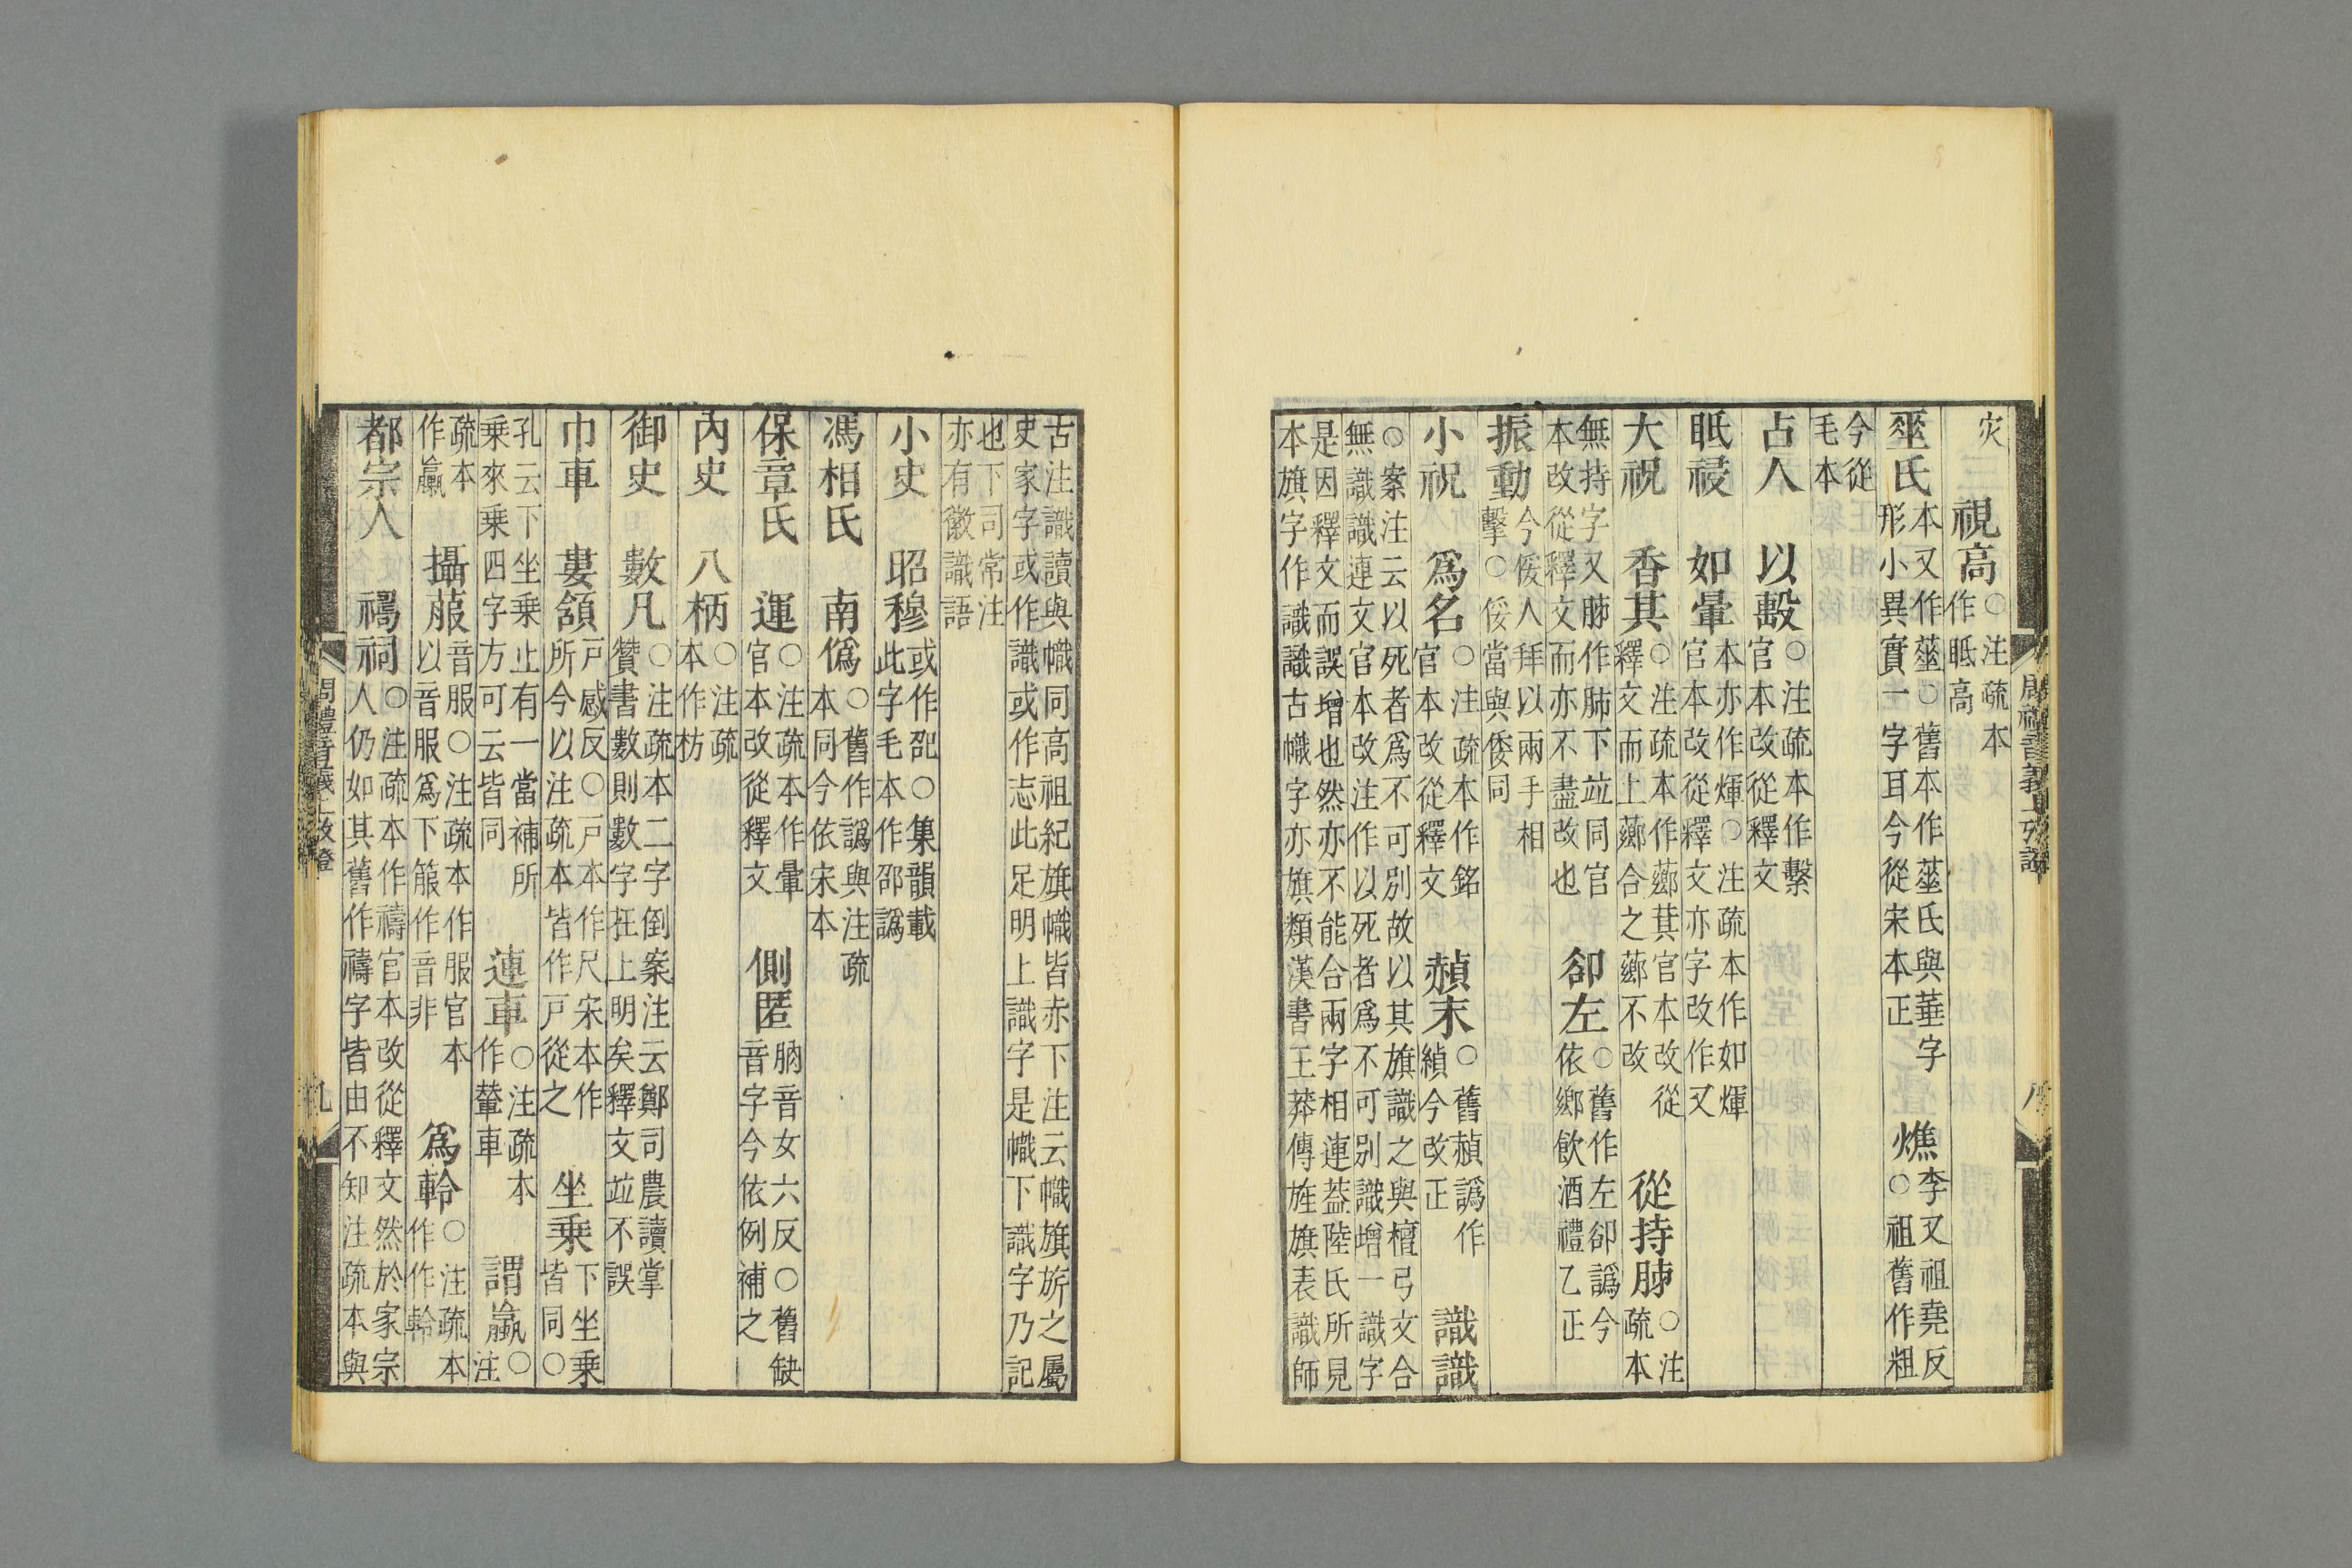 灾 視高○注疏本作眡高
菙氏本又作菙○舊本作菙氏與華字形小異實一字耳今從宋本正 燋李又祖堯反○祖舊作粗
今從毛本
占人 以毄○注疏本作繫官本改從釋文
眡祲 如暈本亦作煇○注疏本作如煇官本改從釋文亦字改作又
大祝 香萁○注疏本作薌萁官本改從釋文而上薌合之薌不改 從持肺○注疏本
無持字又肺作肺下竝同官本改從釋文而亦不盡改也 卻左○舊作左卻譌今依鄉飲酒禮乙正
振動今倭人拜以兩手相擊○倭當與倭同
小祝 爲名○注疏本作銘官本改從釋文 赬末○舊赬譌作縝今改正 識識
○案注云以死者爲不可別故以其旗識之與檀弓文合無識識連文官本改注作以死者爲不可別識增一識字
是因釋文而誤增也然亦不能合兩字相連葢陸氏所見本旗字作識識古幟字亦旗類漢書王莽傳旌旗表識師
周禮音義上攷證 八
古注識讀與幟同高祖紀旗幟皆赤下注云幟旗旂之屬史家字或作識或作志此足明上識字是幟下識字乃記
也下司常注亦有徽識語
小史 昭穆或作㲈○集韻載此字毛本作邵譌
馮相氏 南僞○舊作譌與注疏本同今依宋本
保章氏 運○注疏本作暈官本改從釋文 側匿朒音女六反○舊缺音字今依例補之
內史 八柄○注疏本作枋
御史 數凡○注疏本二字倒案注云鄭司農讀掌贊書數則數字在上明矣釋文竝不誤
巾車 婁頷戸感反○戸本作尺宋本作所今以注疏本皆作戸從之 坐乗下坐乗皆同○
孔云下坐乗止有一當補所乗來乗四字方可云皆同 連車○注疏本作輦車 謂羸○注
疏本作羸 攝菔音服○注疏本作服官本以音服爲下箙作音非 爲軨○注疏本作作軨
都宗人 祠○注疏本作禱官本改從釋文然於家宗人仍如其舊作禱字皆由不知注疏本與
周禮音義上攷證 九